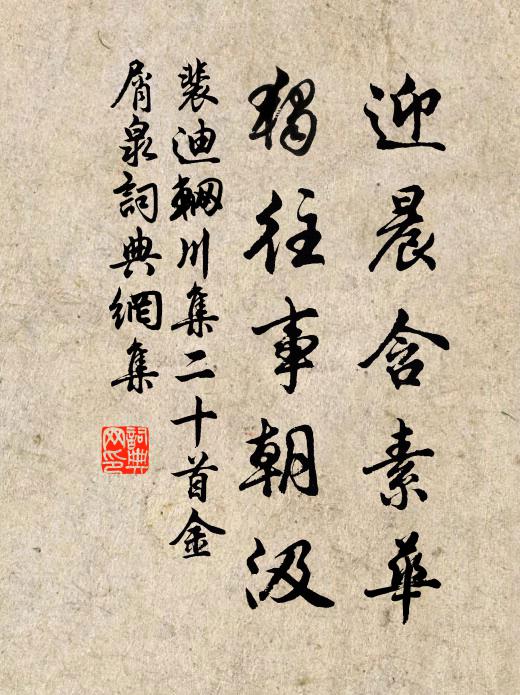 迎晨含素華
獨往事朝汲
裴迪輞川集二十首金
屑泉詞典網集
詞典
网印